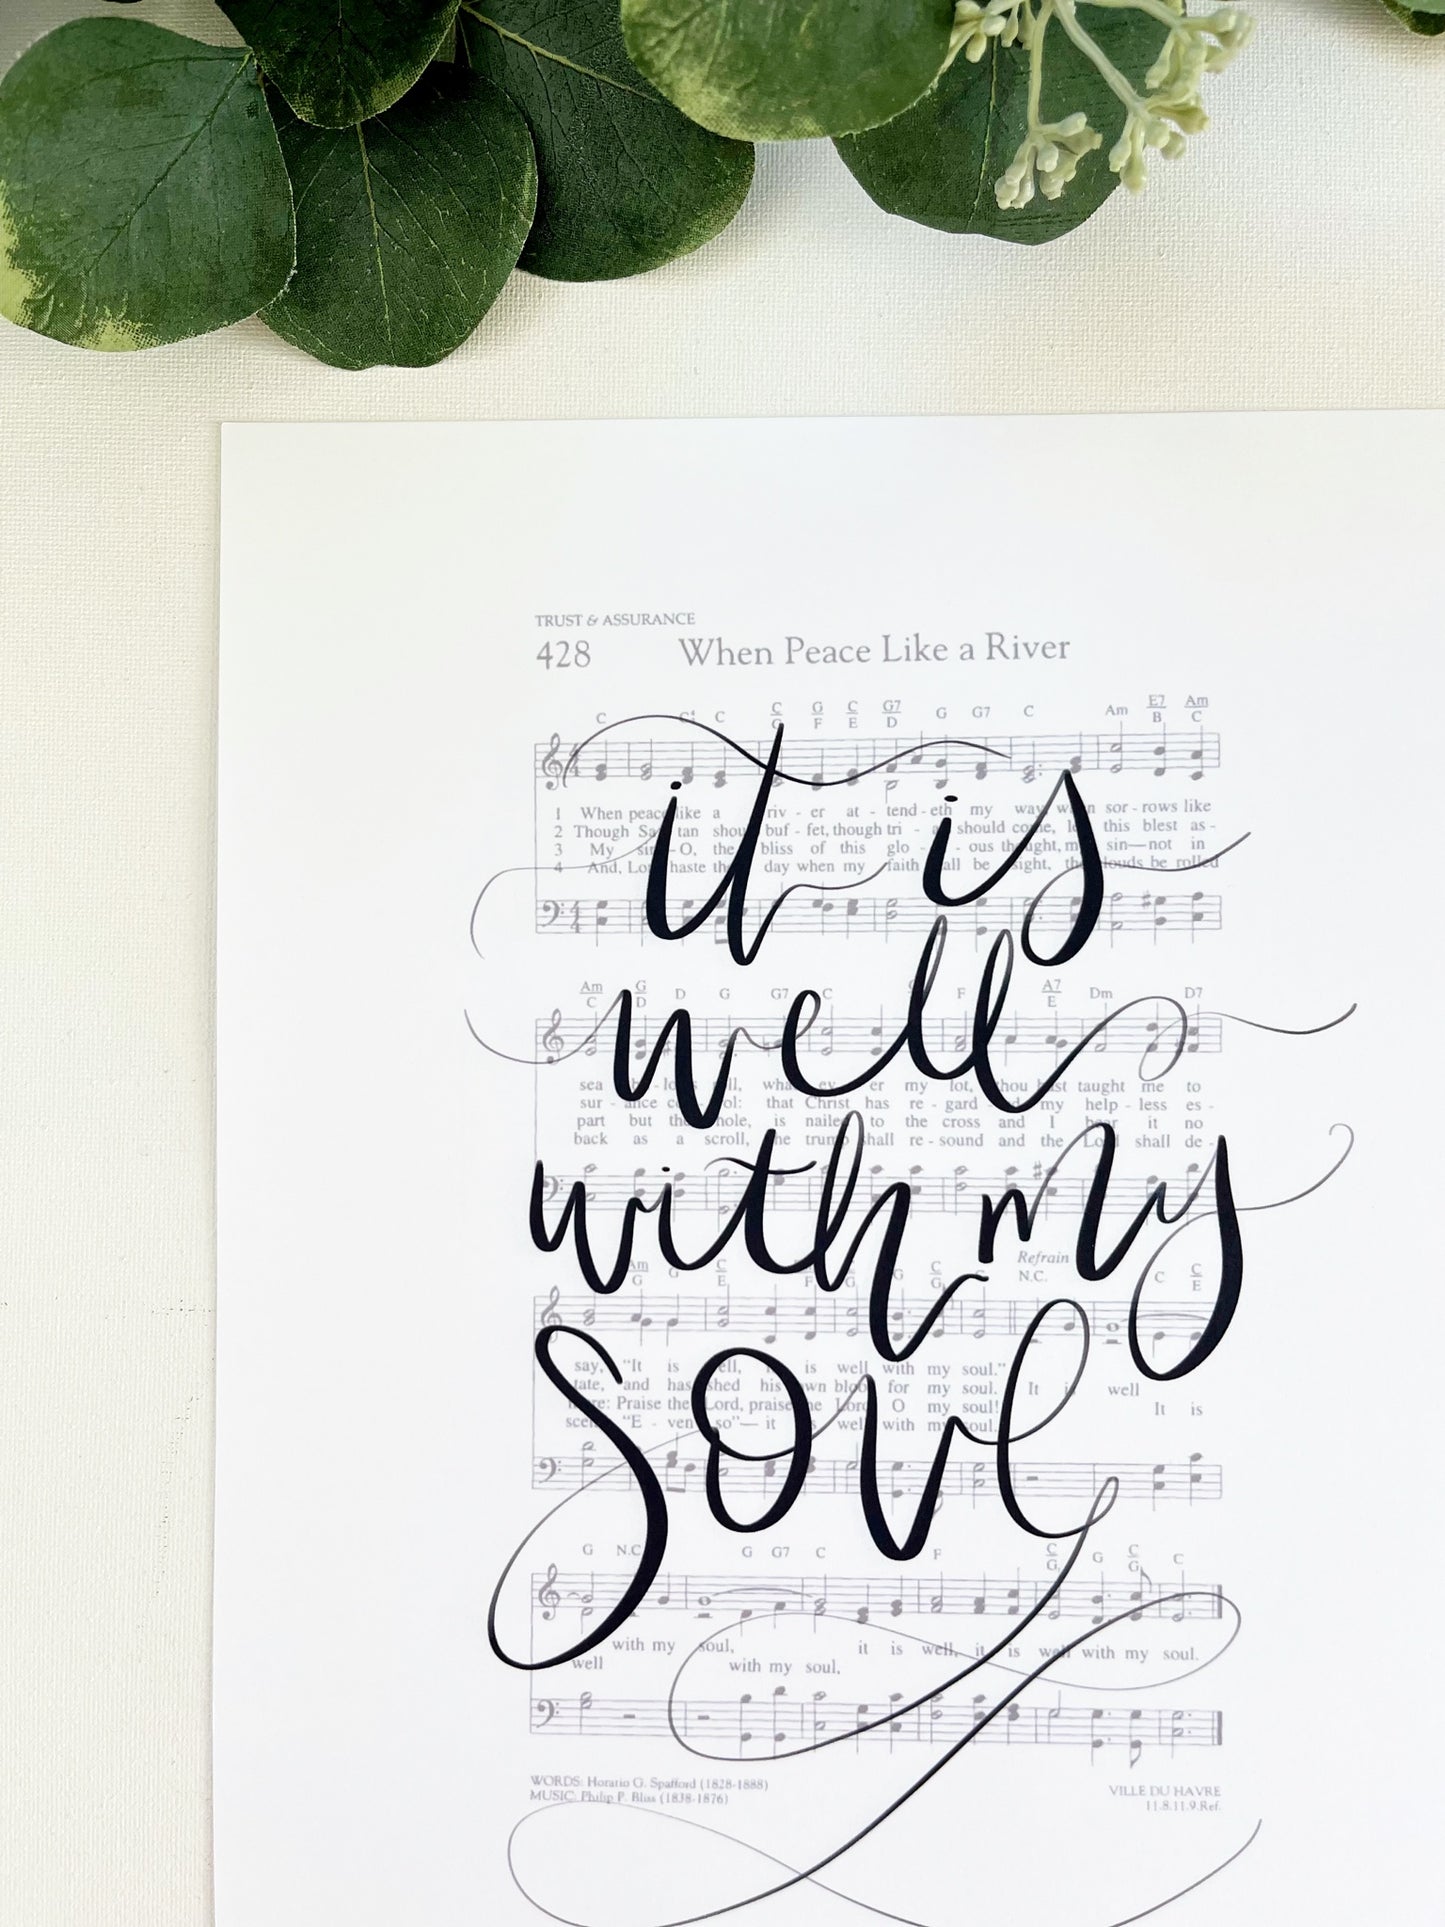 TRUST & ASSURANCE
428 When Peace Like a River
C C4 C C/G G/F C/E G7/D G G7 C Am E7/B Am/C
it is
1 When peace like a riv - er at - tend - eth my way, when sor - rows like
2 Though Sa - tan should buf - fet, though tri - als should come, let this blest as -
3 My sin—O, the bliss of this glo - - ous thought, my sin—not in
4 And, Lord haste the day when my faith shall be sight, the clouds be rolled
Am/C G/D D G G7 C F A7/E Dm D7
well
sea bil - lows roll, what - ev - er my lot, thou hast taught me to
sur - ance con - trol: that Christ has re - gard - ed my help - less es -
part but the whole, is nailed to the cross and I bear it no
back as a scroll, the trump shall re - sound and the Lord shall de -
with my
Am/G G C/E F G G C/G C Refrain N.C. C C/E
soul
say, "It is well, it is well with my soul."
tate, and has shed his own blood for my soul. It is well
more: Praise the Lord, praise the Lord, O my soul! It is
scend, "E - ven so"— it is well with my soul.
G N.C. G G7 C F C/G G C/G C
with my soul, it is well, it is well with my soul.
well with my soul,
WORDS: Horatio G. Spafford (1828-1888) VILLE DU HAVRE
MUSIC: Philip P. Bliss (1838-1876) 11.8.11.9.Ref.